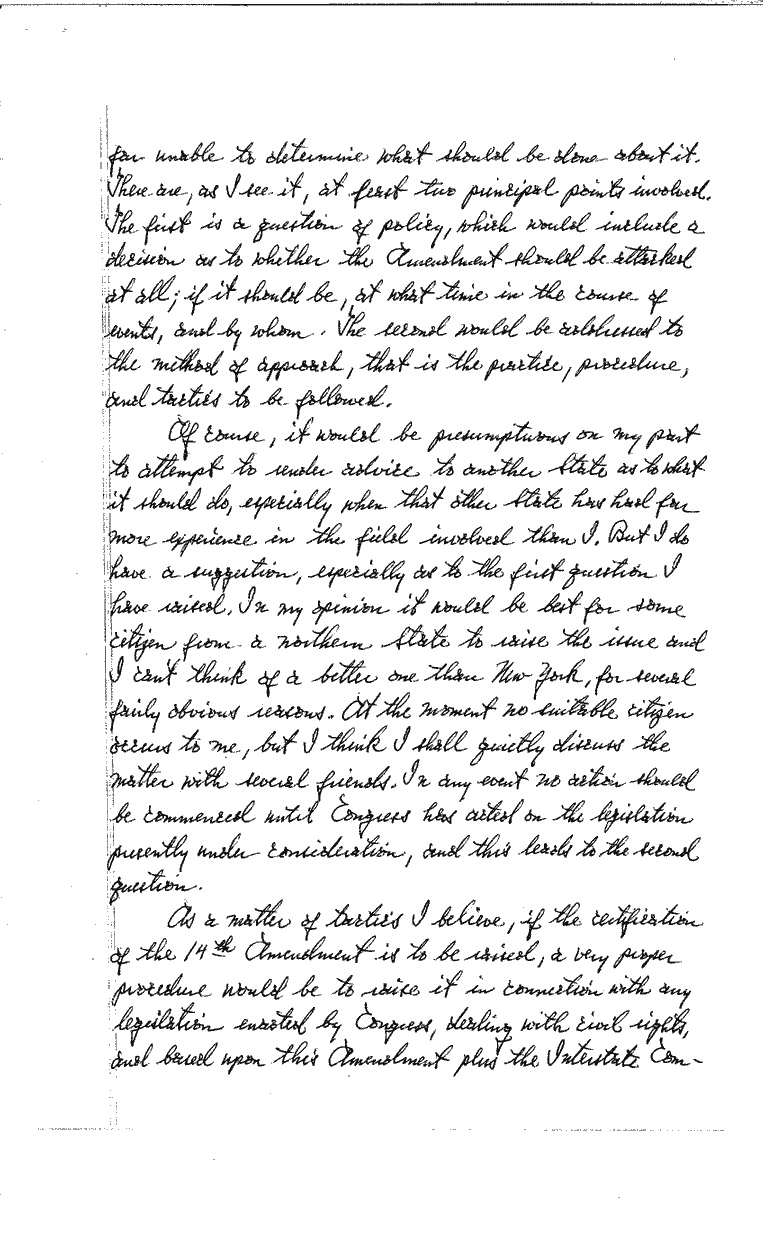 far unable to determine what should be done about it.
There are, as I see it, at least two principal points involved.
The first is a question of policy, which would include a
decision as to whether the Amendment should be attacked
at all; if it should be, at what time in the course of
events, and by whom. The second would be addressed to
the method of approach, that is the practice, procedure,
and tactics to be followed.
Of course, it would be presumptuous on my part
to attempt to render advice to another State as to what
it should do, especially when that other State has had far
more experience in the field involved than I. But I do
have a suggestion, especially as to the first question I
have raised. In my opinion it would be best for some
citizen from a northern State to raise the issue and
I can't think of a better one than New York, for several
fairly obvious reasons. At the moment no suitable citizen
occurs to me, but I think I shall quietly discuss the
matter with several friends. In any event no action should
be commenced until Congress has acted on the legislation
presently under consideration, and this leads to the second
question.
As a matter of tactics I believe, if the certification
of the 14th Amendment is to be raised, a very proper
procedure would be to raise it in connection with any
legislation enacted by Congress, dealing with civil rights,
and based upon this Amendment plus the Interstate Com-